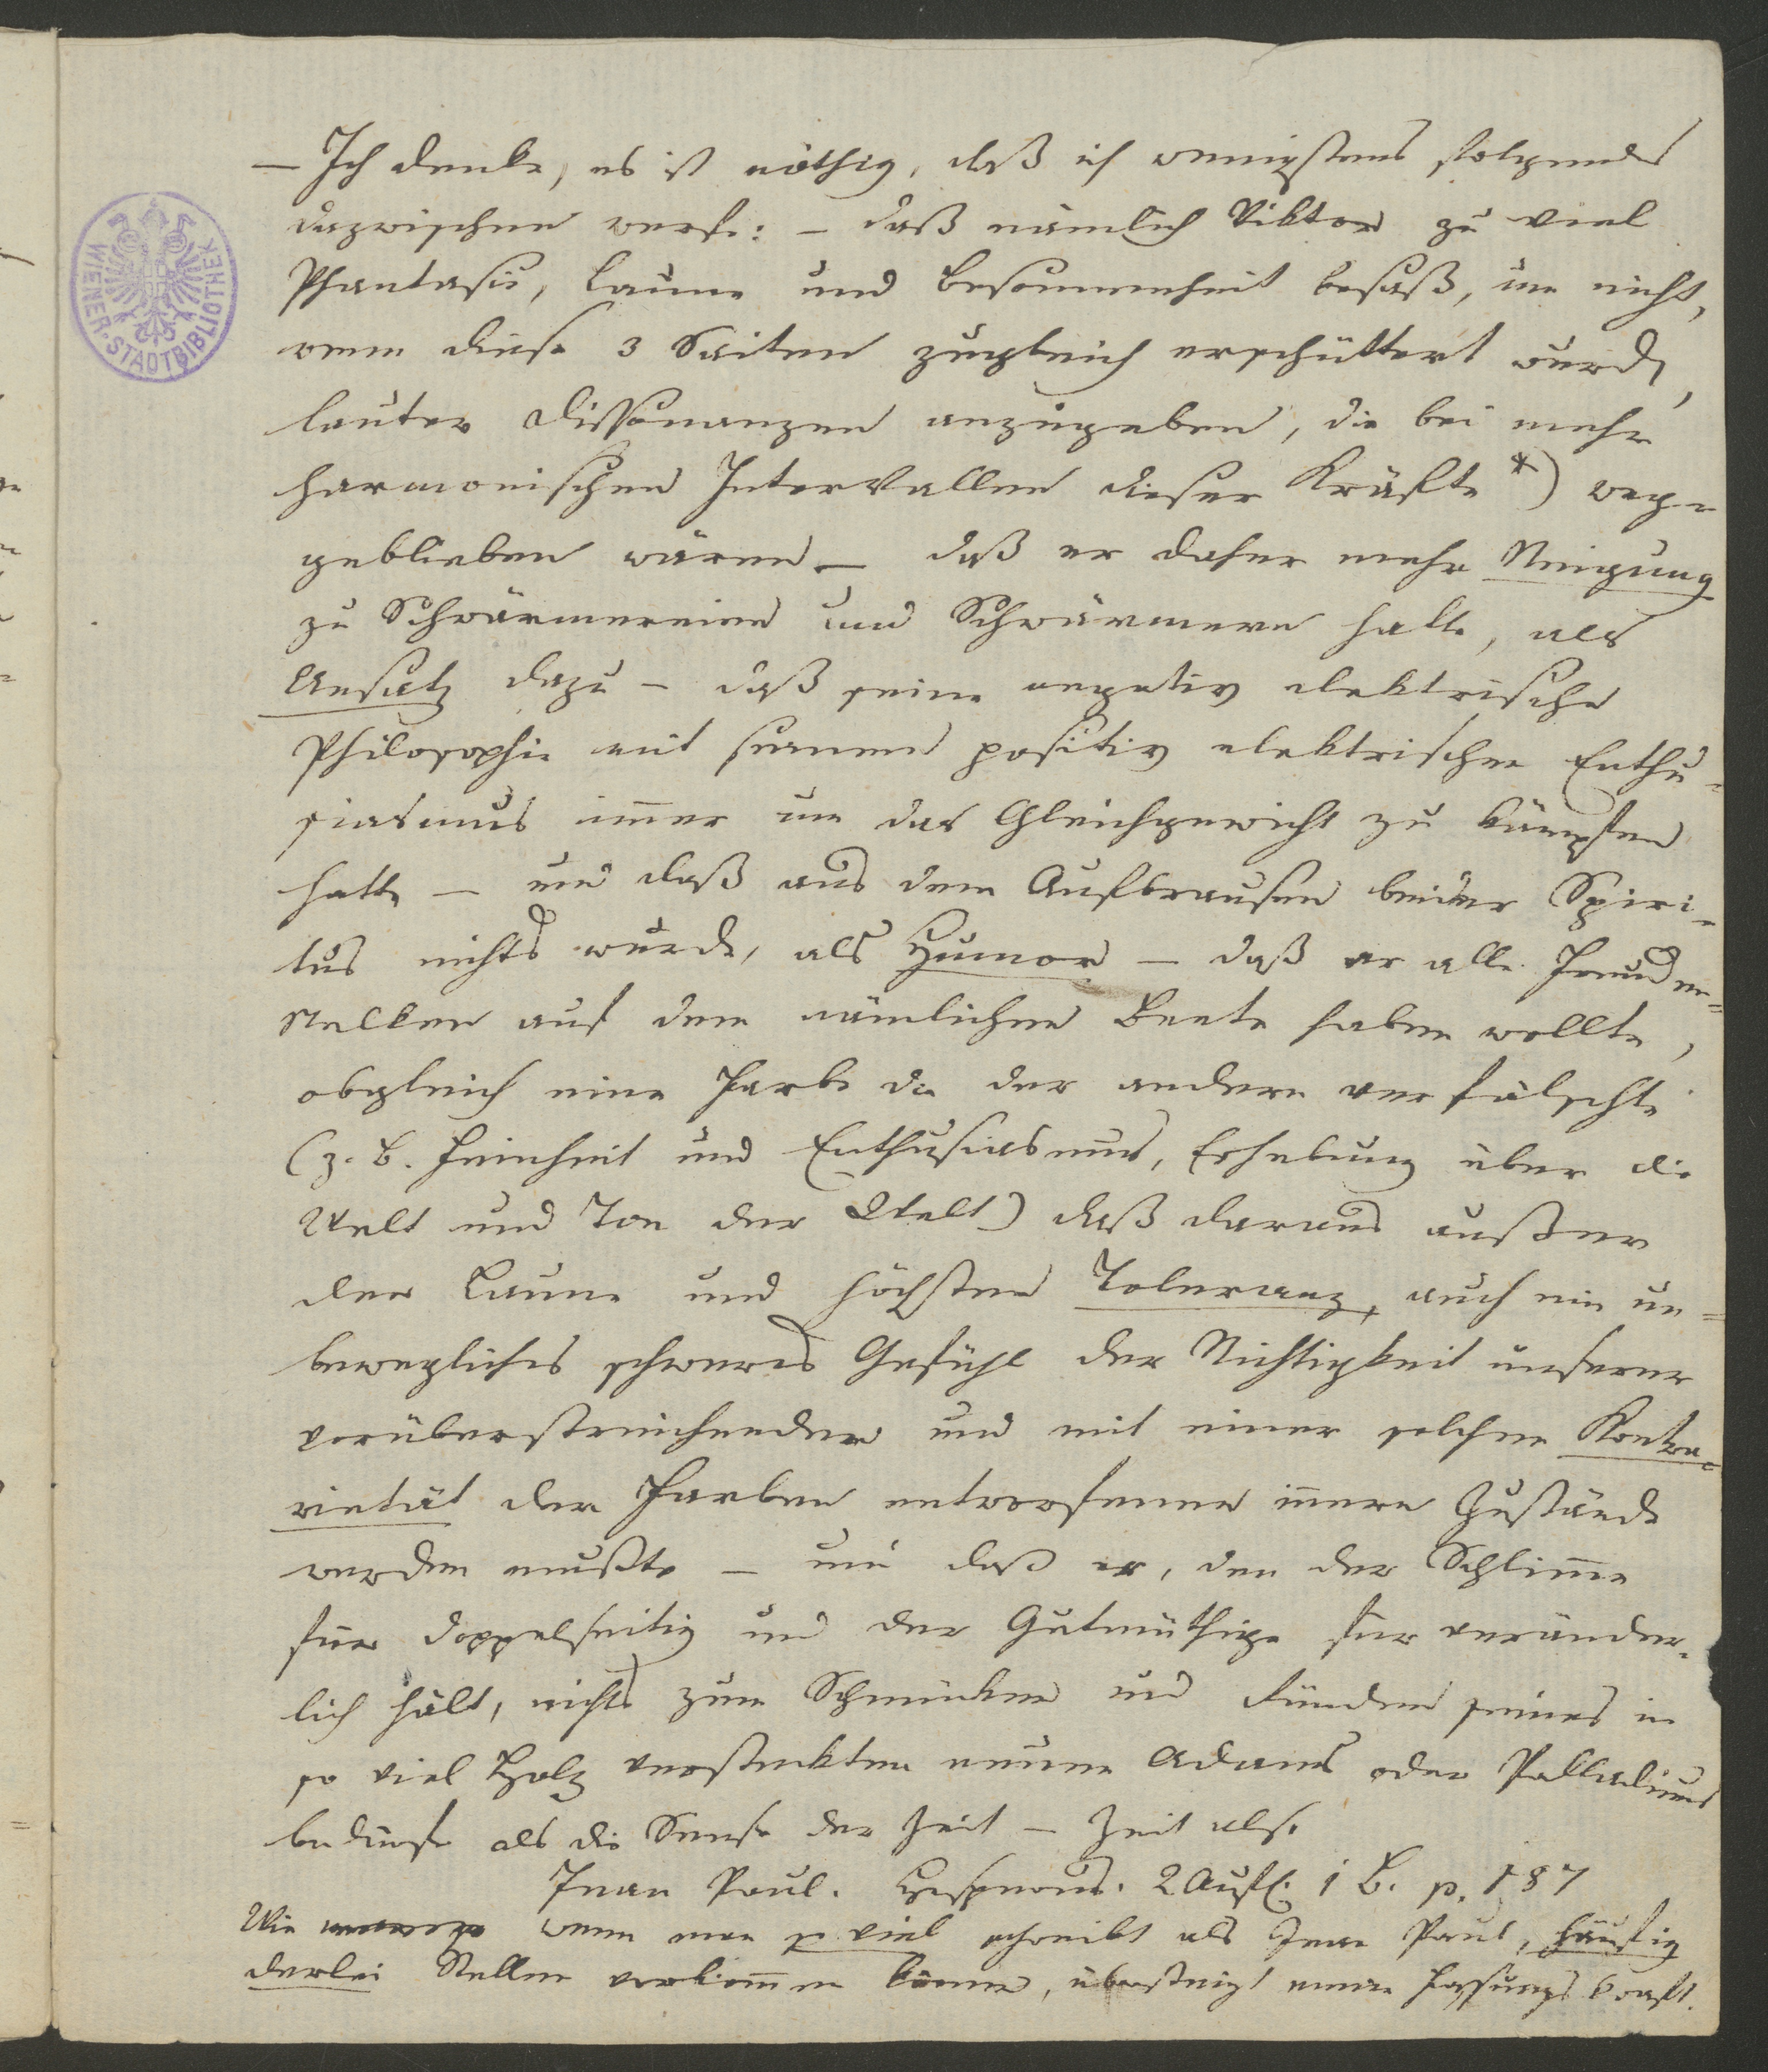 — Ich denke, es ist nöthig, daß ich wenigstens folgendes
dazwischen werfe: – daß nämlich Viktor zu viel
Phantasie, Laune und Besonnenheit besaß, um nicht,
wenn diese 3 Saiten zugleich erschüttert würden,
lauter Dissonanzen anzugeben, die bei mehr
harmonischen Intervallen dieser Kräfte *) weg-
geblieben wären – daß er daher mehr Neigung
zu Schwärmereien und Schwärmern hatte, als
Ansatz dazu – daß seine negativ elektrische
Philosophie mit seinem positiv elektrischen Enthu-
siasmus immer um das Gleichgewicht zu kämpfen
hatte – und daß aus dem Aufbrausen beider Spiri-
tus nichts wurde, als Humor – daß er alle Freuden-
Nelken auf dem nämlichen Beete haben wollte,
obgleich eine Farbe die der andern verfälschte
(z. B. Feinheit und Enthusiasmus, Erhebung über die
Welt und Ton der Welt) daß daraus außer
der Laune und höchsten Toleranz, auch ein un-
bewegliches schweres Gefühl der Nichtigkeit unserer
vorüberstreichenden und mit einer solchen Kontra-
rietät der Farben entworfenen innern Zustände
werden mußte – und daß er, den der Schlimme
für doppelseitig und der Gutmüthige für veränder-
lich hält, nichts zum Schminken und Ründen seines in
so viel Holz versteckten neuen Adams oder Palladiums
bedürfe als die Sense der Zeit – Zeit also.
Jean Paul. Hesperus. 2 Aufl. 1 B. p. 187
Wie wenn man so viel schreibt als Jean Paul, häufig
derlei Stellen vorkommen können, übersteigt meine Fassungskraft.
WIENER STADTBIBLIOTHEK